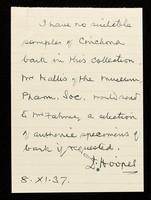 I have no suitable
samples of Cinchona
bark in this collection
Mr Wallis of the Museum
Pharm. Soc. would send
to Mr Palmer, a selection
of authentic specimens of
bark if requested.
D. Hooper
8. XI. 37.